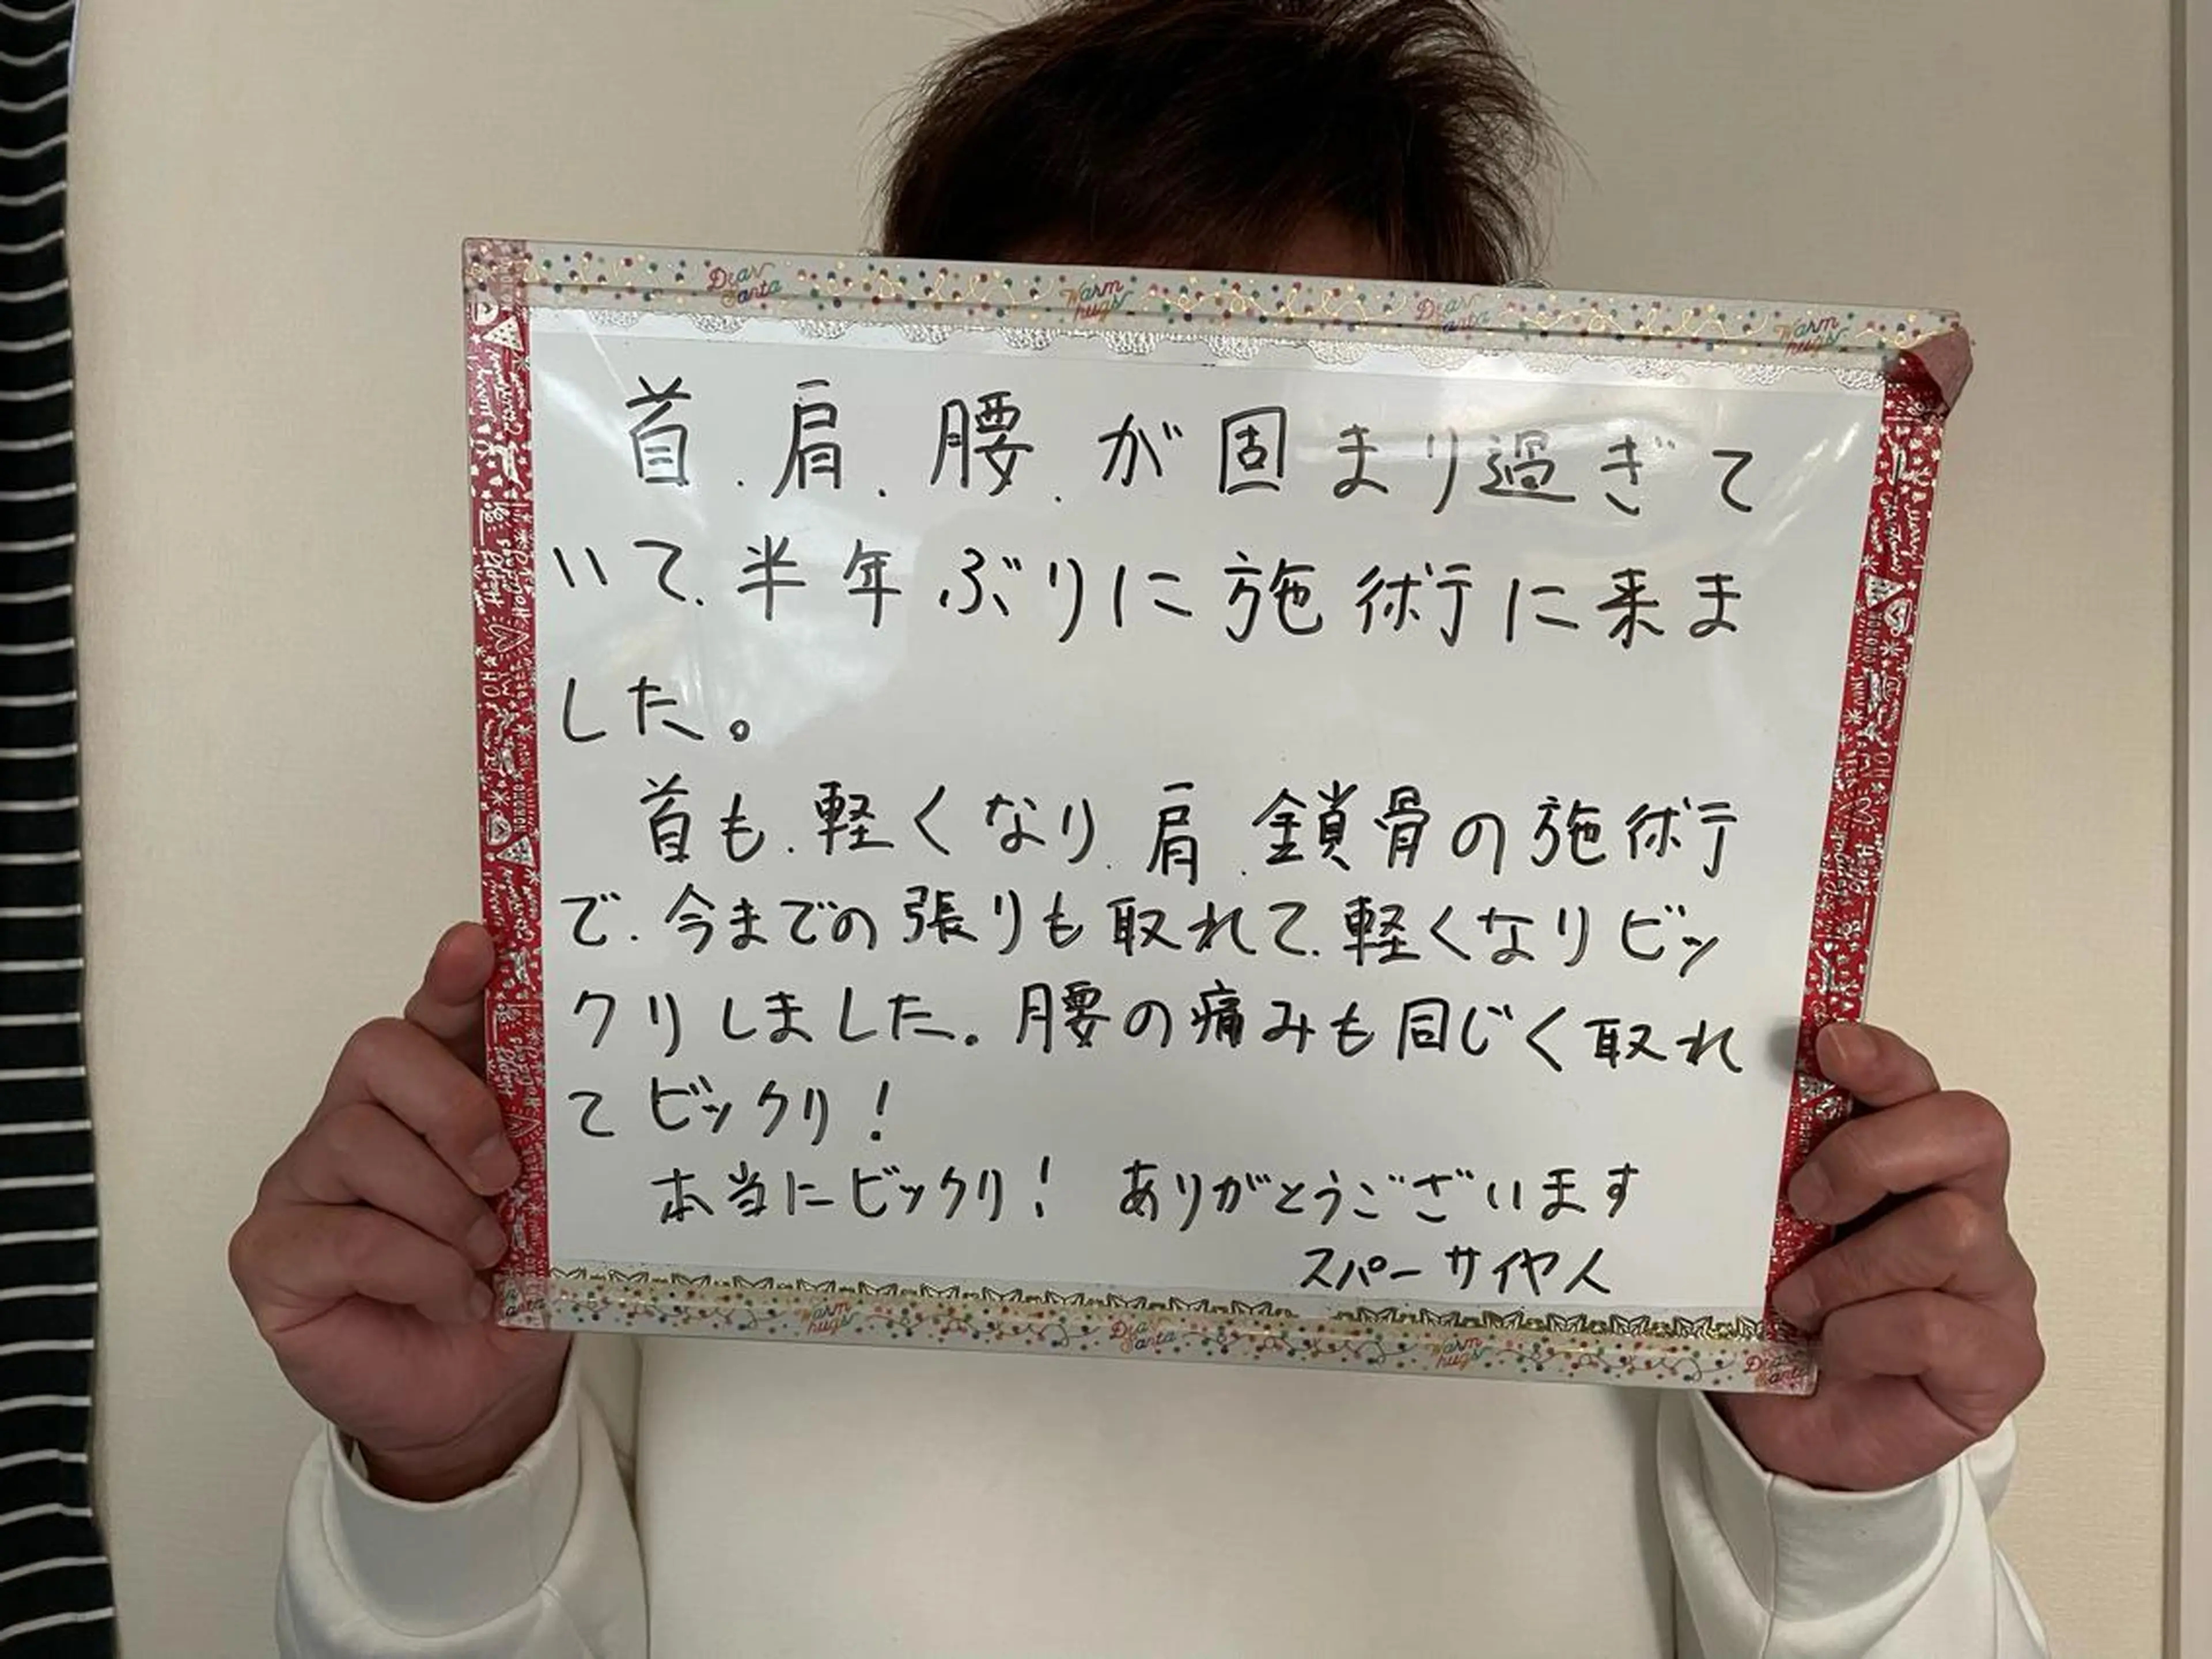 首、肩、腰、が固まり過ぎて
いて、半年ぶりに施術に来ま
した。
首も、軽くなり、肩、鎖骨の施術
で、今までの張りも取れて、軽くなりビッ
クリしました。腰の痛みも同じく取れ
てビックリ!
本当にビックリ! ありがとうございます
スパーサイヤ人
Dear Santa
Warm hugs
Dear Santa
Warm hugs
Warm hugs
Dear Santa
Warm hugs
Dear Santa